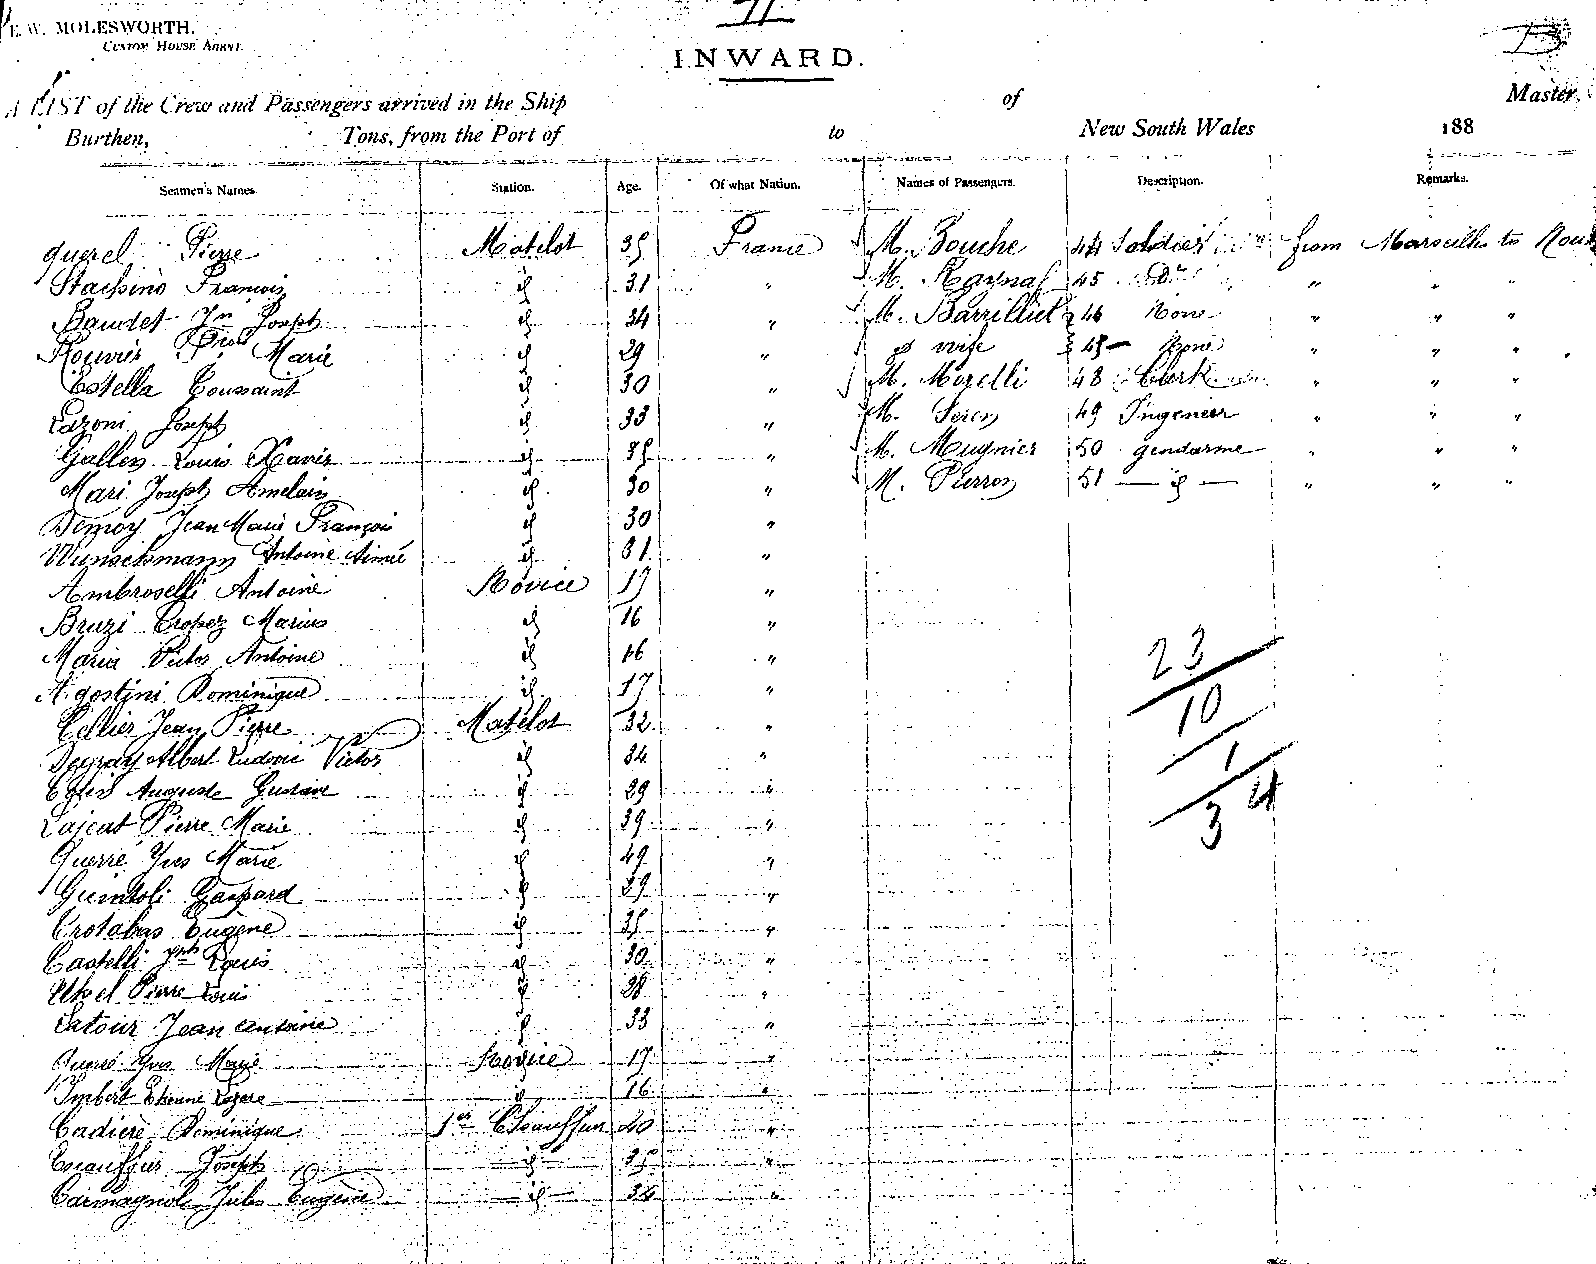 E. W. MOLESWORTH.
CUSTOM HOUSE AGENT.
INWARD.
A LIST of the Crew and Passengers arrived in the Ship of Master,
Burthen, Tons, from the Port of to New South Wales 188
Seamen's Names. Station. Age. Of what Nation. Names of Passengers. Description. Remarks.
querel Pierre Matelot 35 France M. Bouche 44 Soldier from Marseille to
Stachino François id 31 " M. Raynal 45 Do " " "
Baudet Jn Joseph id 34 " M. Barrilliet 46 None " " "
Rouvier Marie id 29 " & wife 47 None " " "
Estella Toussaint id 30 " M. Morelli 48 Clerk " " "
Lazoni Joseph id 33 " M. 49 Ingenieur " " "
Gallen Louis Xavier id 35 " M. Mugnier 50 gendarme " " "
Mari Joseph id 30 " M. Pierron 51 — id — " " "
Demoy Jean Marie François id 30 "
Wunschmann Antoine Aimée id 31 "
Ambroselli Antoine Novice 17 "
Bruzi Tropez Marius id 16 "
Maria Victor Antoine id 16 "
Agostini Dominique id 17 "
Tellier Jean Pierre Matelot 32 "
Albert Ludovic Victor id 34 "
Auguste Gustave id 29 "
Lajeat Pierre Marie id 39 "
Querré Yves Marie id 49 "
Guintoli Gaspard id 29 "
Crotabas Eugène id 35 "
Castelli Jph Louis id 30 "
Pierre Louis id 28 "
Latour Jean Antoine id 33 "
Yves Marie Novice 17 "
Imbert Etienne Lazare id 16 "
Cadière Dominique 1er Chauffeur 40 "
Joseph id 35 "
Carmagnole Jules Eugène id 34 "
23
10
1
34